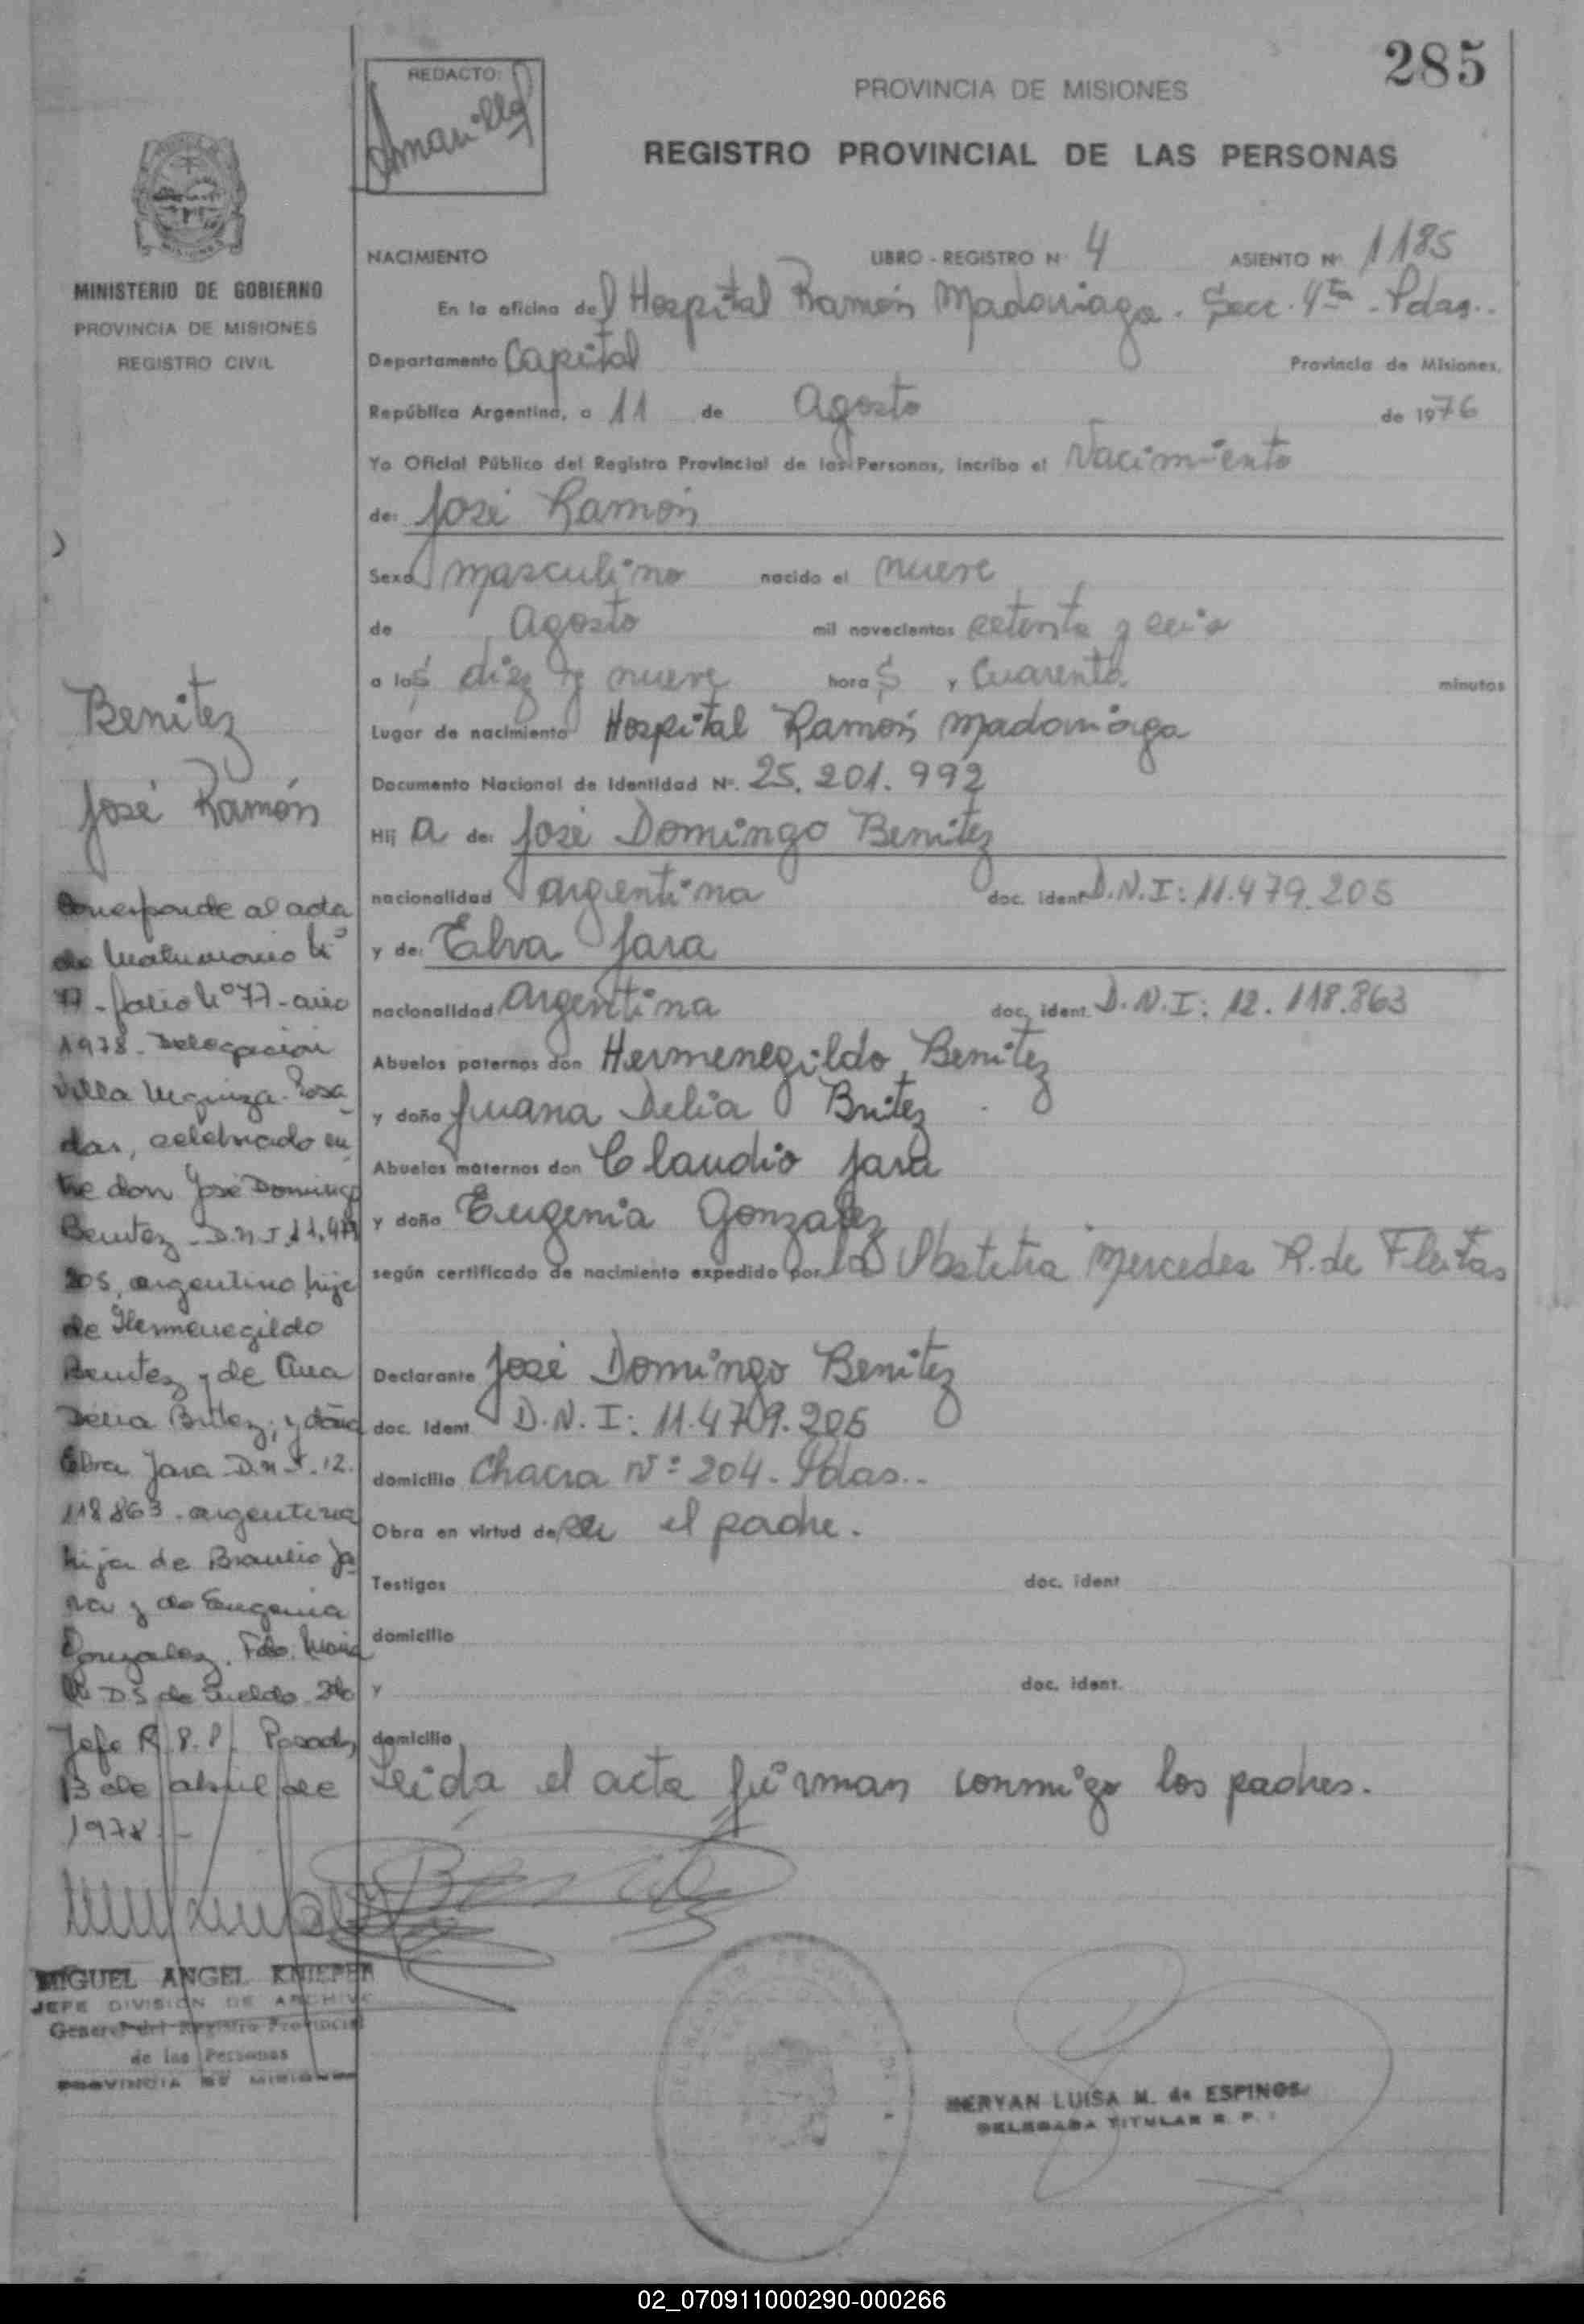 285
REDACTO:
PROVINCIA DE MISIONES
REGISTRO PROVINCIAL DE LAS PERSONAS
MINISTERIO DE GOBIERNO
PROVINCIA DE MISIONES
REGISTRO CIVIL
NACIMIENTO LIBRO - REGISTRO Nº 4 ASIENTO Nº 1185
En la oficina del Hospital Ramón Madariaga. Secc. 4ta - Pdas..
Departamento Capital Provincia de Misiones,
República Argentina, a 11 de Agosto de 1976
Yo Oficial Público del Registro Provincial de las Personas, incribo el Nacimiento
de: José Ramón
Sexo masculino nacido el nueve
de Agosto mil novecientos setenta y seis
a las diez y nueve horas y cuarenta minutos
Lugar de nacimiento Hospital Ramón Madariaga
Documento Nacional de Identidad Nº. 25.201.992
Hij o de: José Domingo Benitez
nacionalidad argentina doc. ident D.N.I: 11.479.205
y de: Elva Jara
nacionalidad argentina doc. ident. D.N.I: 12.118.863
Abuelos paternos don Hermenegildo Benitez
y doña Juana Delia Britez
Abuelos maternos don Claudio Jara
y doña Eugenia Gonzalez
según certificado de nacimiento expedido por la Obstetra Mercedes R. de Fleitas
Declarante José Domingo Benitez
doc. Ident. D.N.I: 11.479.205
domicilio Chacra Nº 204 - Pdas..
Obra en virtud de ser el padre.
Testigos doc. ident
domicilio
y doc. ident.
domicilio
Leída el acta firman conmigo los padres.
Benitez
José Ramón
Corresponde al acta
de Matrimonio Nº
77 - folio Nº 77 - año
1978 - Delegación
Villa Urquiza - Posa
das, celebrado en
tre don José Domingo
Benitez - D.N.I. 11.479
205, argentino hijo
de Hermenegildo
Benitez y de Ana
Delia Britez; y doña
Elva Jara D.N.I. 12.
118.863 - argentina
hija de Braulio Ja
ra y de Eugenia
Gonzalez. Fdo. Maria
D.S de Sueldo
Jefe R.P.P. Posadas
13 de abril de
1978 -
MIGUEL ANGEL KNIEPER
JEFE DIVISION DE ARCHIVO
General del Registro Provincial
de las Personas
PROVINCIA DE MISIONES
MERYAN LUISA M. de ESPINOSA
DELEGADA TITULAR R. P.
02_070911000290-000266